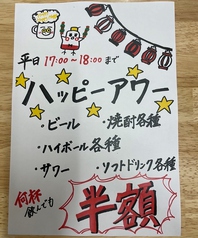 平日 17:00~18:00まで
ハッピーアワー
・ビール ・焼酎各種
・ハイボール各種
・サワー ・ソフトドリンク各種
何杯
飲んでも
半額